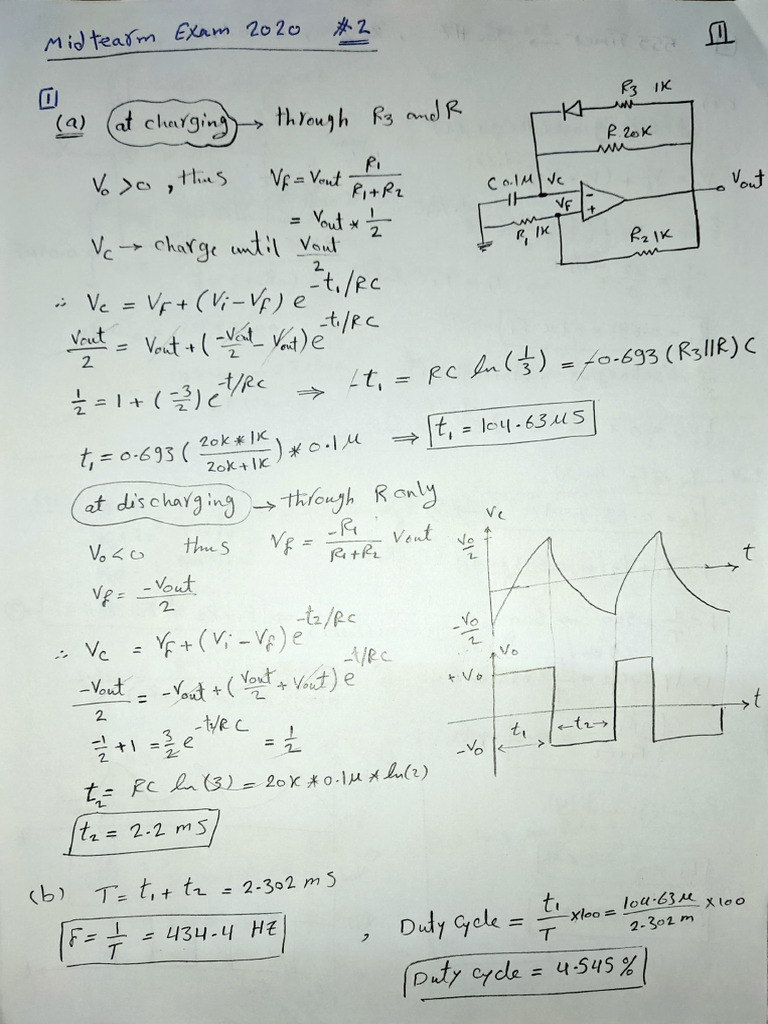 Midtearm Exam 2020 #2
1
1
(a) at charging → through R3 and R
V₀ > 0, thus VF = Vout R1/(R1+R2)
= Vout * 1/2
Vc → charge until Vout/2
∴ Vc = VF + (Vi - VF) e^(-t1/RC)
Vout/2 = Vout + (-Vout/2 - Vout) e^(-t1/RC)
1/2 = 1 + (-3/2) e^(-t/RC) ⇒ -t1 = RC ln(1/3) = -0.693 (R3||R) C
t1 = 0.693 (20K*1K/(20K+1K)) * 0.1μ ⇒ t1 = 104.63 μS
R3 1K
R 20K
C 0.1μ Vc
VF
-
+
Vout
R1 1K
R2 1K
at discharging → through R only
V₀ < 0 thus Vf = -R1/(R1+R2) Vout
Vf = -Vout/2
∴ Vc = VF + (Vi - VF) e^(-t2/RC)
-Vout/2 = -Vout + (Vout/2 + Vout) e^(-t/RC)
-1/2 + 1 = 3/2 e^(-t2/RC) = 1/2
t2 = RC ln(3) = 20K * 0.1μ * ln(2)
t2 = 2.2 mS
Vc
V₀/2
t
-V₀/2
V₀
+V₀
t
t1
t2
-V₀
(b) T = t1 + t2 = 2.302 mS
F = 1/T = 434.4 HZ , Duty Cycle = t1/T x100 = 104.63μ/2.302m x100
Duty cycle = 4.545 %